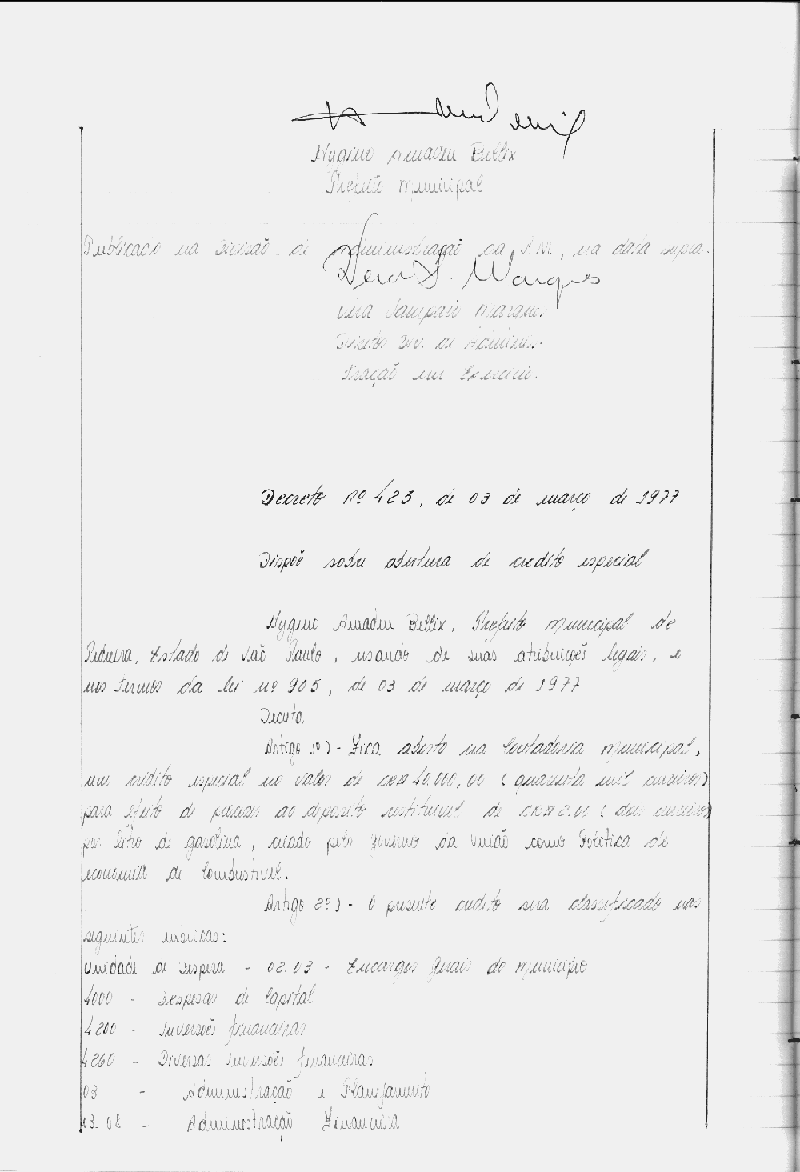 Hygino Amadeu Bellix
Prefeito Municipal
Publicado na Divisão de Administração da P.M., na data supra.
Vera S. Marques
Vera Sampaio Marques.
Diretor Div. de Adminis-
tração em Exercício.
Decreto Nº 423, de 03 de março de 1977
Dispõe sobre abertura de crédito especial
Hygino Amadeu Bellix, Prefeito Municipal de
Pedreira, Estado de São Paulo, usando de suas atribuições legais, e
nos termos da lei nº 905, de 03 de março de 1977
Decreta
Artigo 1º) - Fica aberto na Contadoria Municipal,
um crédito especial no valor de 40.000,00 (quarenta mil cruzeiros)
para efeito de ao depósito restituível de 2,00 (dois cruzeiros)
por litro de gasolina, criado pelo Governo da União como Política de
economia de Combustível.
Artigo 2º) - O presente crédito será classificado nas
seguintes
Unidade de Despesa - 02.03 - Encargos Gerais do Município
4000 - Despesas de Capital
4200 - Inversões financeiras
4260 - Diversas inversões financeiras
03 - Administração e Planejamento
03.08 - Administração Financeira